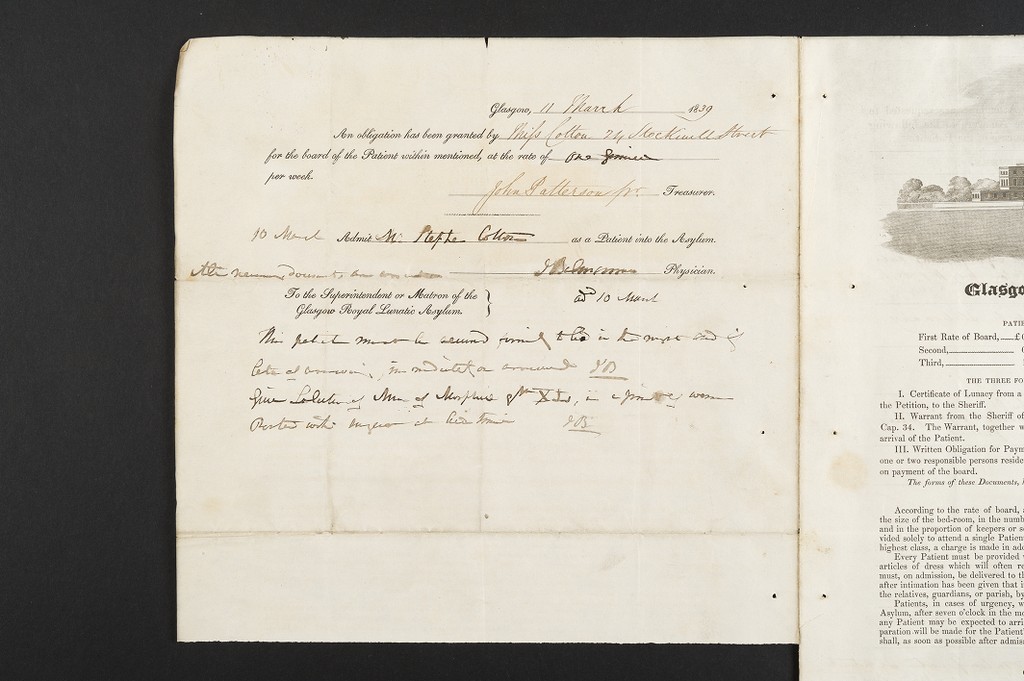 Glasgow, 11 March 1839
An obligation has been granted by Miss Cotton 24 Stockwell Street
for the board of the Patient within mentioned, at the rate of One Guinea
per week.
John Patterson Jr. Treasurer.
10 March Admit Mr. Stephn Cotton as a Patient into the Asylum.
Physician.
To the Superintendent or Matron of the
Glasgow Royal Lunatic Asylum.
10 March
This patient must be secured firmly to bed in the night and if
JB
Give Solution of Mur of Morphia gtt XL, in a of warm
Porter with sugar at bed time JB
Glasgo
PATIE
First Rate of Board, £
Second,
Third,
THE THREE FO
I. Certificate of Lunacy from a
the Petition, to the Sheriff.
II. Warrant from the Sheriff of
Cap. 34. The Warrant, together w
arrival of the Patient.
III. Written Obligation for Paym
one or two responsible persons reside
on payment of the board.
The forms of these Documents,
According to the rate of board, a
the size of the bed-room, in the numb
and in the proportion of keepers or s
vided solely to attend a single Patien
highest class, a charge is made in add
Every Patient must be provided
articles of dress which will often re
must, on admission, be delivered to th
after intimation has been given that i
the relatives, guardians, or parish, by
Patients, in cases of urgency, w
Asylum, after seven o'clock in the mo
any Patient may be expected to arri
paration will be made for the Patient'
shall, as soon as possible after admis